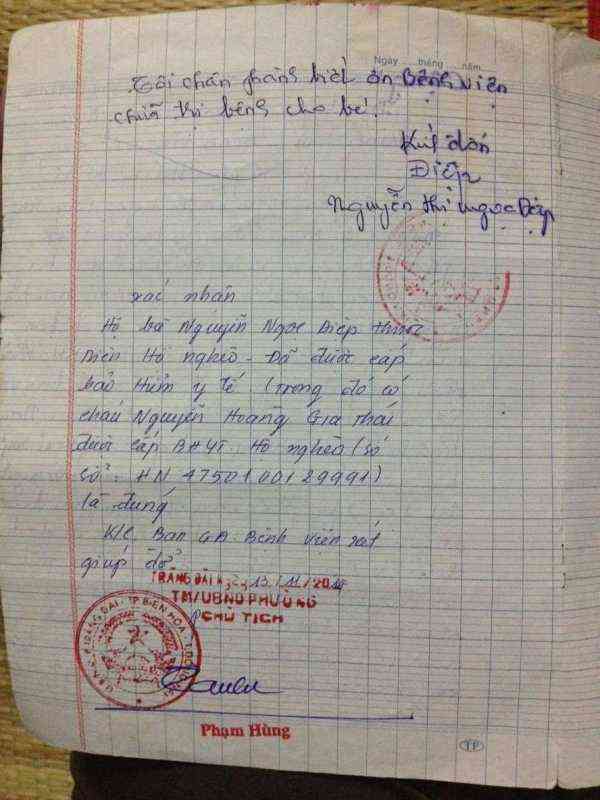 Ngày tháng năm
Tôi chân thành biết ơn Bệnh viện
chữa trị bệnh cho bé.
Kính đơn
Điệp
Nguyễn thị ngọc Điệp
xác nhận
Hộ bà Nguyễn Ngọc Điệp thuộc
Diện Hộ nghèo - Đã được cấp
bảo Hiểm y tế (trong đó có
cháu Nguyễn Hoàng Gia Thái
được cấp BHYT Hộ nghèo (số
sổ: HN 4750100129991)
là đúng
K/c Ban GĐ Bệnh viện xét
giúp đỡ
TRẢNG DÀI 13/11/20
TM/UBND PHƯỜNG
CHỦ TỊCH
TRẢNG DÀI - TP BIÊN HÒA
Phạm Hùng
TP